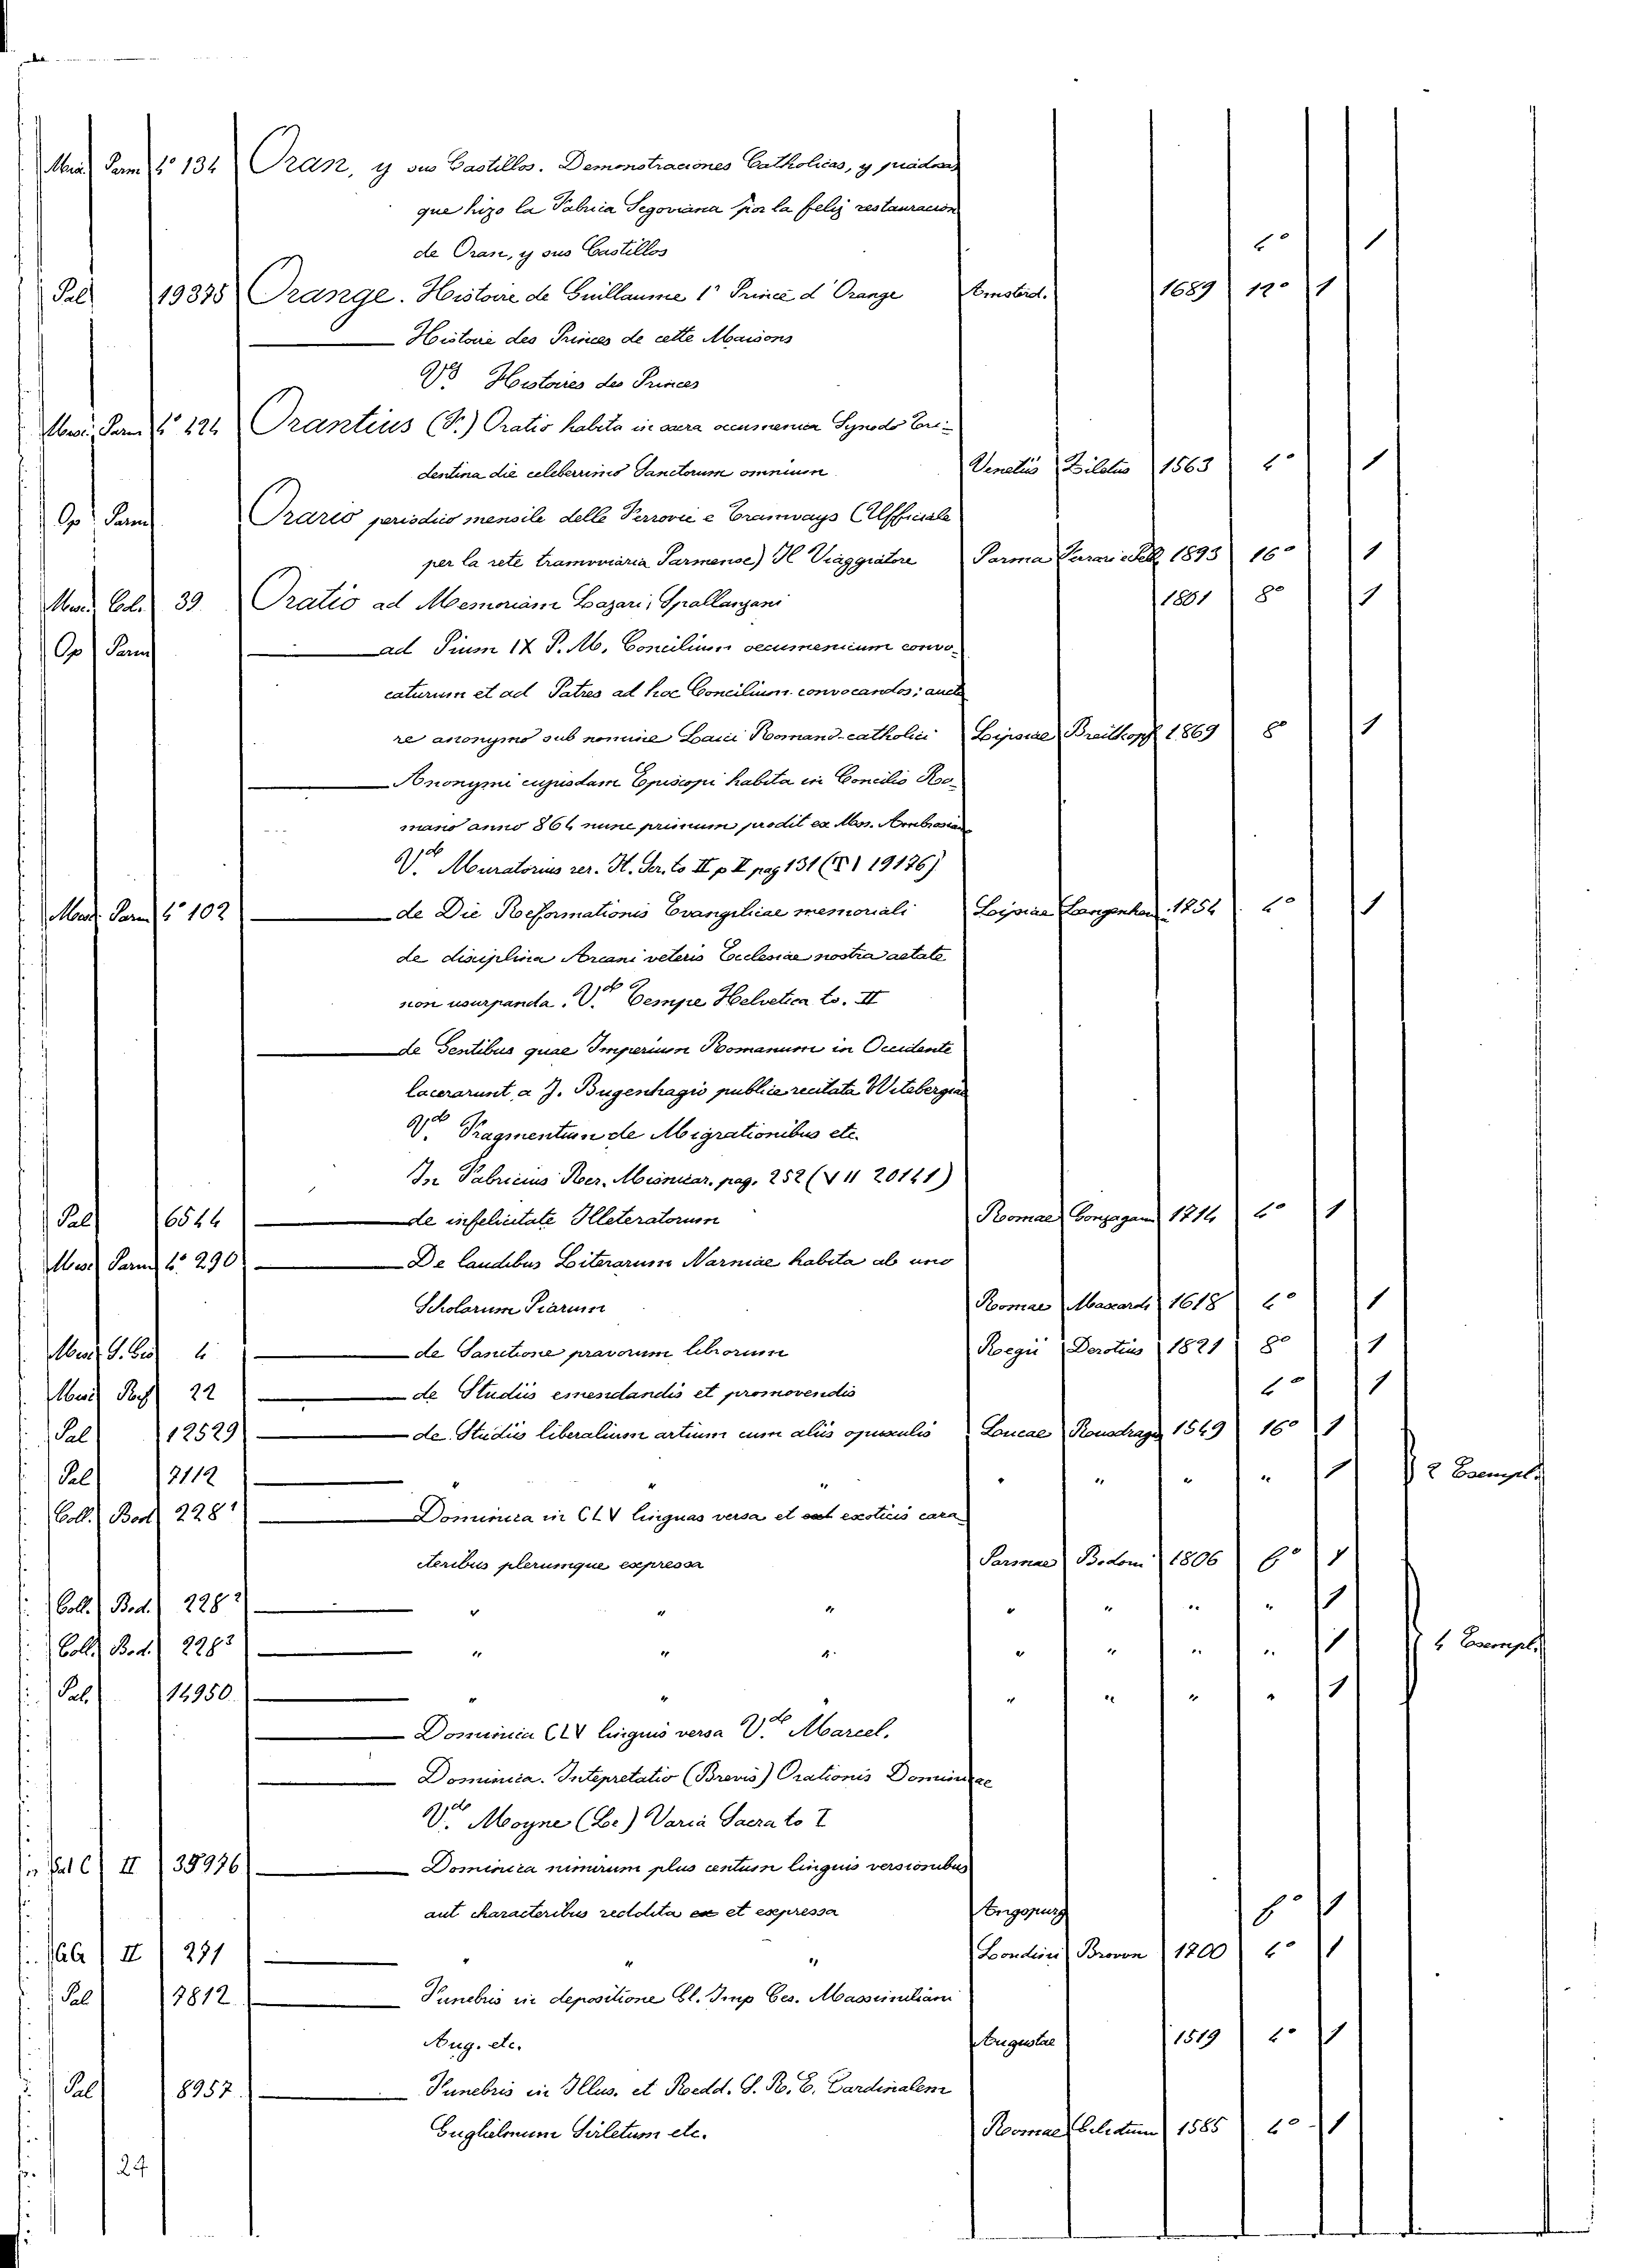 Misc. Parm 4° 134 Oran, y sus Castillos. Demonstraciones Catholicas, y
que hizo la Fabrica Segoviana por la feliz restauracion
de Oran, y sus Castillos 4° 1
Pal 19375 Orange. Histoire de Guillaume 1r Prince d'Orange Amsterd. 1689 12° 1
Histoire des Princes de cette Maisons
Vd Histoires des Princes
Misc. Parm 4° 124 Orantius (F.) Oratio habita in sacra oecumenica Synodo Tri-
dentina die celeberrimo Sanctorum omnium Venetiis Ziletus 1563 4° 1
Op Parm Orario periodico mensile delle Ferrovie e Tramways (Ufficiale
per la rete tramoviaria Parmense) Il Viaggiatore Parma Ferrari e Pell. 1893 16° 1
Misc. Col. 39. Oratio ad Memoriam Lazari, Spallanzani 1801 8° 1
Op Parm ad Pium IX P. M. Concilium oecumenicum convo-
caturum et ad Patres ad hoc Concilium convocandos; aucto
re anonymo sub nomine Laici Romano-catholici Lipsiae Breitkopf 1869 8° 1
Anonymi cujusdam Episcopi habita in Concilio Ro-
mano anno 864 nunc primum prodit ex Mss. Ambrosian
Vd. Muratorius rer. It. Scr. to II p II pag 131 19176)
Misc. Parm 4° 102 de Die Reformationis Evangelicae memoriali Lipsiae Langenhem 1754 4° 1
de disciplina Arcani veteris Ecclesiae nostra aetate
non usurpanda. Vd. Tempe Helvetica to. II
de Gentibus quae Imperium Romanum in Occidente
lacerarunt, a J. Bugenhagio publice recitata Witebergiae
Vd. Fragmentum de Migrationibus etc.
In Fabricius Rer. Misnicar. pag. 252 (V 11 20141)
Pal 6544 de infelicitate Illeteratorum Romae Gonzagam 1714 4° 1
Misc. Parm 4° 290 De laudibus Literarum Narniae habita ab uno
Scholarum Piarum Romae Mascardi 1618 4° 1
Misc. 4 de Sanctione pravorum librorum Regii Derotius 1821 8° 1
Misc. 22 de Studiis emendandis et promovendis 4° 1
Pal 12529 de Studiis liberalium artium cum aliis opusculis Lucae Rousdragn 1549 16° 1
Pal 7112 " " " " " " " 1 2 Esempl.
Coll. Bod 228¹ Dominica in CLV linguas versa et exoticis cara
cteribus plerumque expressa Parmae Bodoni 1806 6° 1
Coll. Bod. 228² " " " " " " " 1
Coll. Bod. 228³ " " " " " " " 1 4 Esempl.
Pal. 14950 " " " " " " 1
Dominica CLV linguis versa Vd Marcel.
Dominica. Intepretatio (Brevis) Orationis Dominicae
Vd. Moyne (Le) Varia Sacra to I
Pal C II 35976 Dominica nimirum plus centum linguis versionibus
aut characteribus reddita et expressa Augspurg 6° 1
II 271 " " " Londini Brown 1700 4° 1
Pal 7812 Funebris in depositione Cl. Imp Ces. Massimiliani
Aug. etc. Augustae 1519 4° 1
Pal 8957 Funebris in Illus. et Redd. S. R. E. Cardinalem
Guglielmum Sirletum etc. Romae 1585 4° 1
24